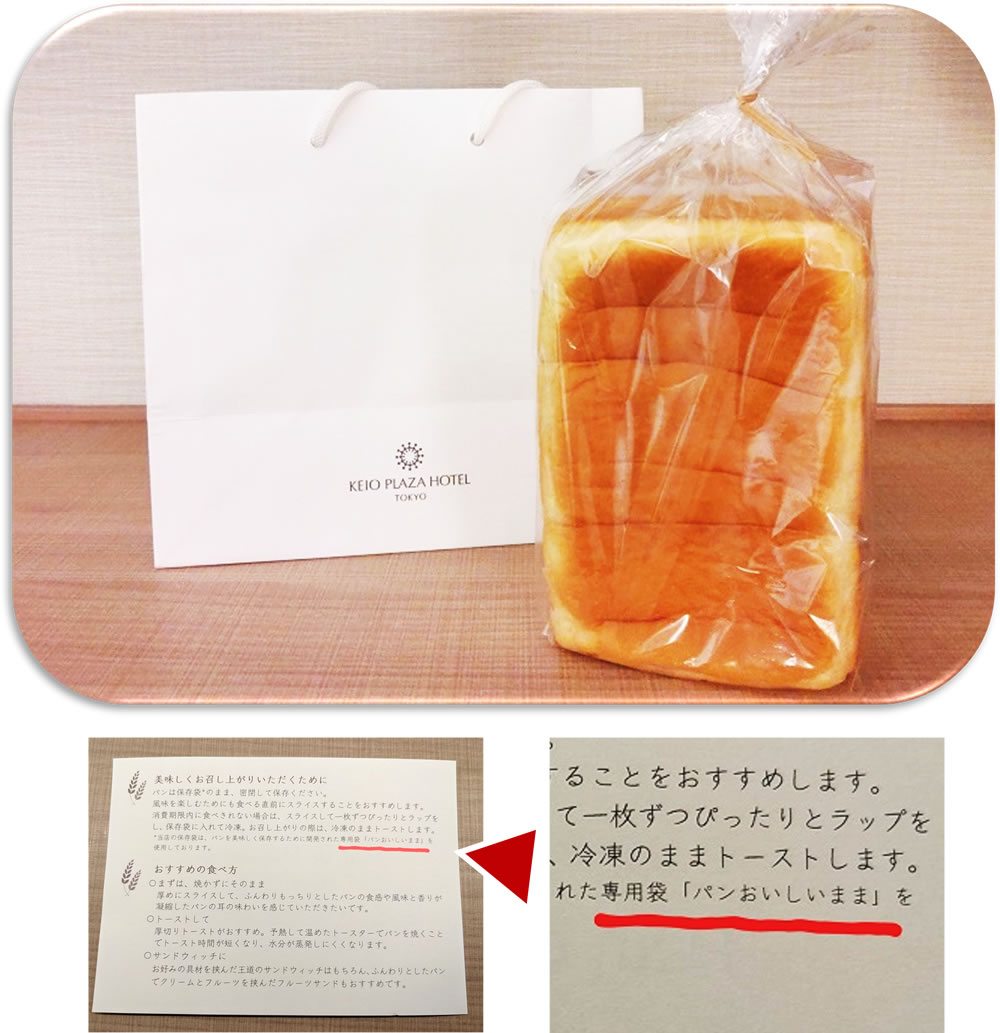 KEIO PLAZA HOTEL
TOKYO
美味しくお召し上がりいただくために
パンは保存袋*のまま、密閉して保存ください。
風味を楽しむためにも食べる直前にスライスすることをおすすめします。
消費期限内に食べきれない場合は、スライスして一枚ずつぴったりとラップを
し、保存袋に入れて冷凍。お召し上がりの際は、冷凍のままトーストします。
*当店の保存袋は、パンを美味しく保存するために開発された専用袋「パンおいしいまま」を
使用しております。
おすすめの食べ方
○まずは、焼かずにそのまま
厚めにスライスして、ふんわりもっちりとしたパンの食感や風味と香りが
凝縮したパンの耳の味わいを感じていただきたいです。
○トーストして
厚切りトーストがおすすめ。予熱して温めたトースターでパンを焼くこと
でトースト時間が短くなり、水分が蒸発しにくくなります。
○サンドウィッチに
お好みの具材を挟んだ王道のサンドウィッチはもちろん、ふんわりとしたパン
でクリームとフルーツを挟んだフルーツサンドもおすすめです。
。
することをおすすめします。
て一枚ずつぴったりとラップを
、冷凍のままトーストします。
れた専用袋「パンおいしいまま」を